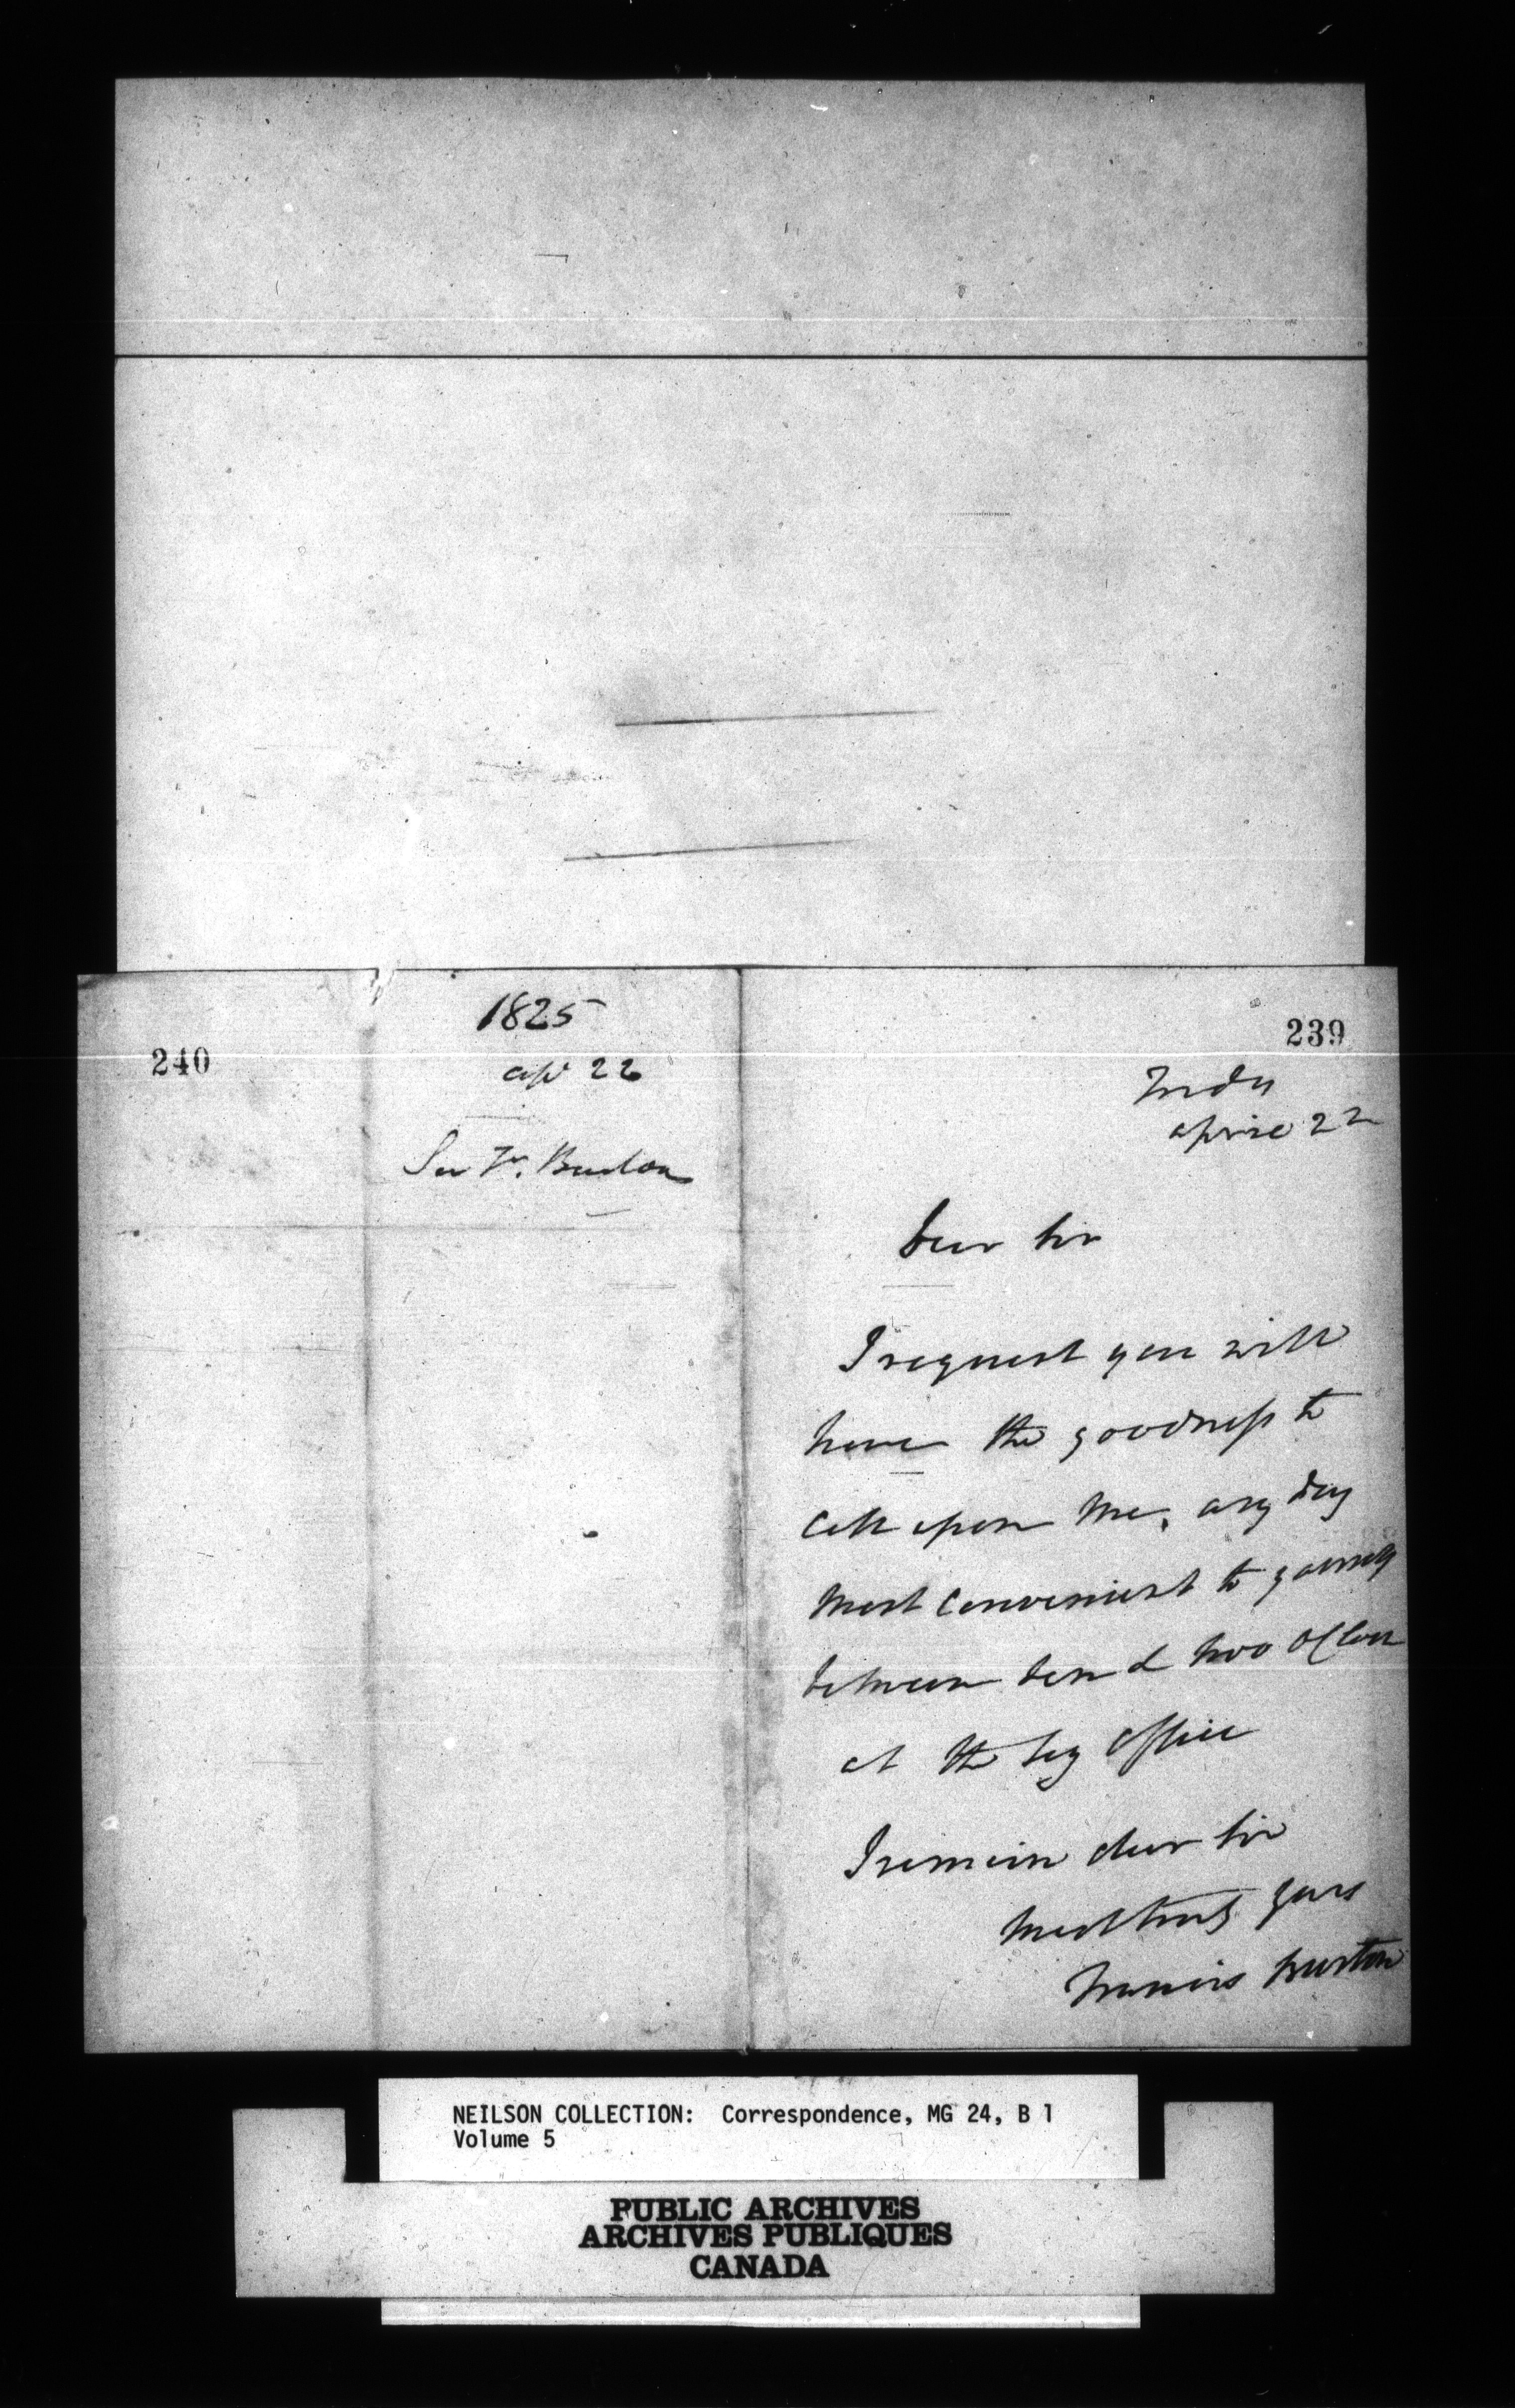 240
1825
ap 22
Sir F. Burton
239
Friday
April 22
Dear Sir
I request you will
have the goodness to
call upon me, any day
most convenient to yourself
between ten & two o'clock
at the office
I remain dear Sir
most truly yours
Francis Burton
NEILSON COLLECTION: Correspondence, MG 24, B 1
Volume 5
PUBLIC ARCHIVES
ARCHIVES PUBLIQUES
CANADA